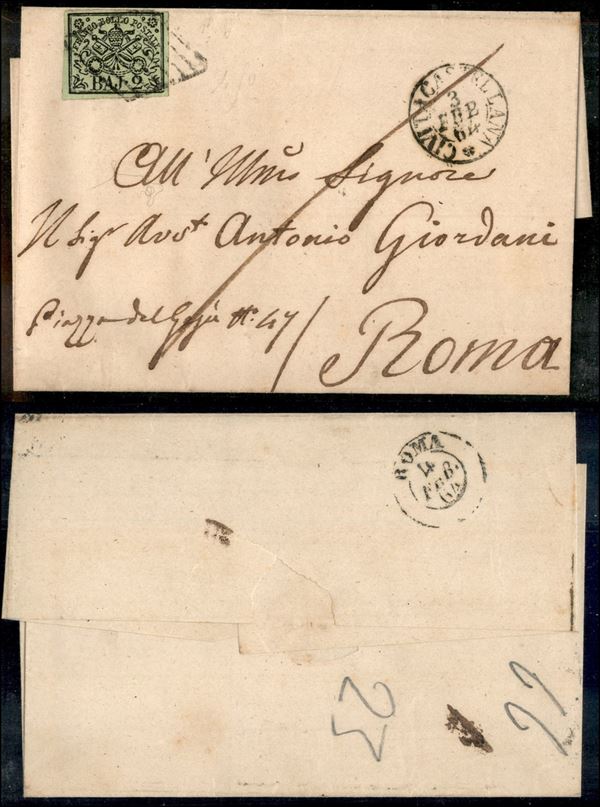 FRANCO BOLLO POSTALE
BAJ. 2
CIVITA CASTELLANA
3
FEB
64
All' Illmo Signore
Il Sigr Avvt Antonio Giordani
Piazza del Gesù No. 47 / Roma
ROMA
4
FEB.
64
23
22